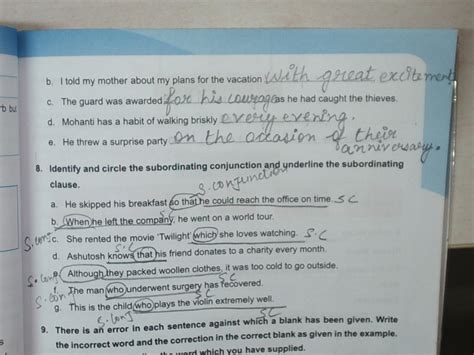 b. I told my mother about my plans for the vacation with great excitement
c. The guard was awarded for his courage as he had caught the thieves.
d. Mohanti has a habit of walking briskly every evening.
e. He threw a surprise party on the occasion of their
anniversary.
8. Identify and circle the subordinating conjunction and underline the subordinating
clause.
S. conjunction
a. He skipped his breakfast so that he could reach the office on time. SC
b. When he left the company, he went on a world tour.
S.C
S. conj
c. She rented the movie 'Twilight' which she loves watching. S.C
S.C
d. Ashutosh knows that his friend donates to a charity every month.
S. conj
e. Although they packed woollen clothes, it was too cold to go outside.
SC
f. The man who underwent surgery has recovered.
S. conj
SC
g. This is the child who plays the violin extremely well.
S. conj
9. There is an error in each sentence against which a blank has been given. Write
the incorrect word and the correction in the correct blank as given in the example.
word which you have supplied.